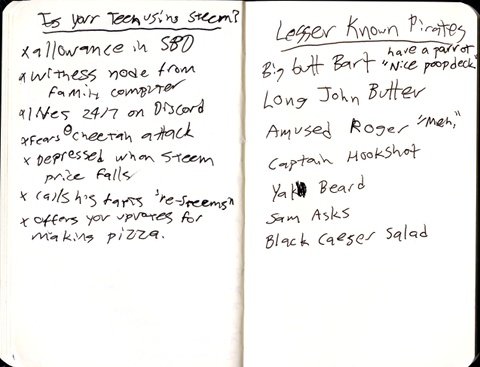 Is your Teen using Steem?
x allowance in SBD
x witness node from
family computer
x lives 24/7 on Discord
x fears @cheetah attack
x Depressed when Steem
price falls
x calls his farts "re-steems"
x offers you upvotes for
making pizza.
Lesser Known Pirates
Big butt Bart have a parrot
"Nice poopdeck"
Long John Butter
Amused Roger "Meh,"
Captain Hookshot
Yak Beard
Sam Asks
Black Caeser Salad